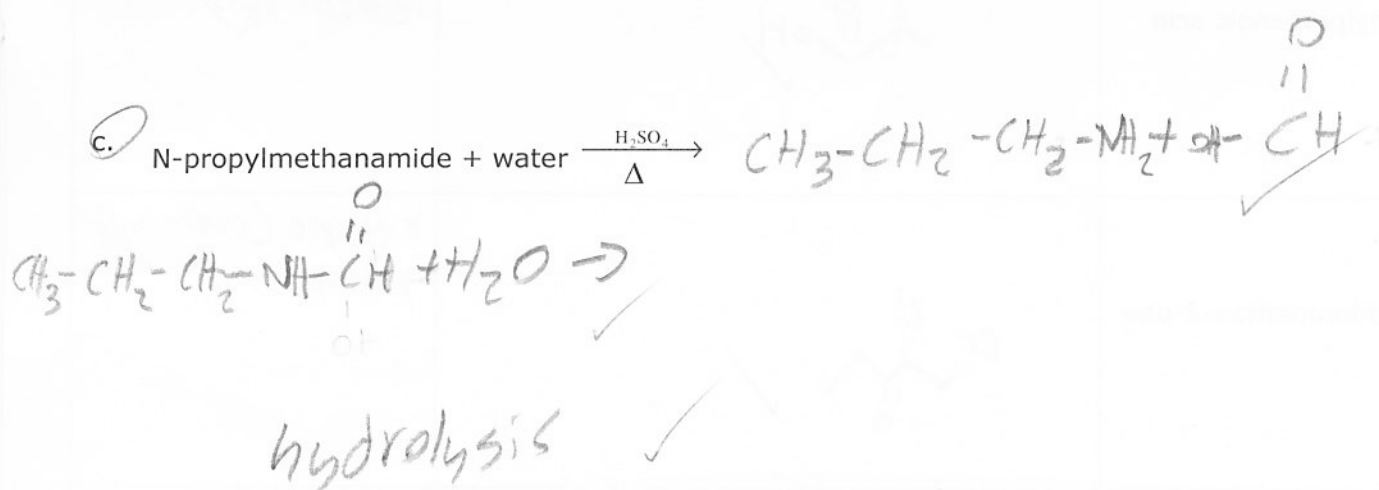 O
||
c. N-propylmethanamide + water H₂SO₄ Δ → CH₃-CH₂-CH₂-NH₂ + OH-CH
O
||
CH₃-CH₂-CH₂-NH-CH + H₂O →
hydrolysis